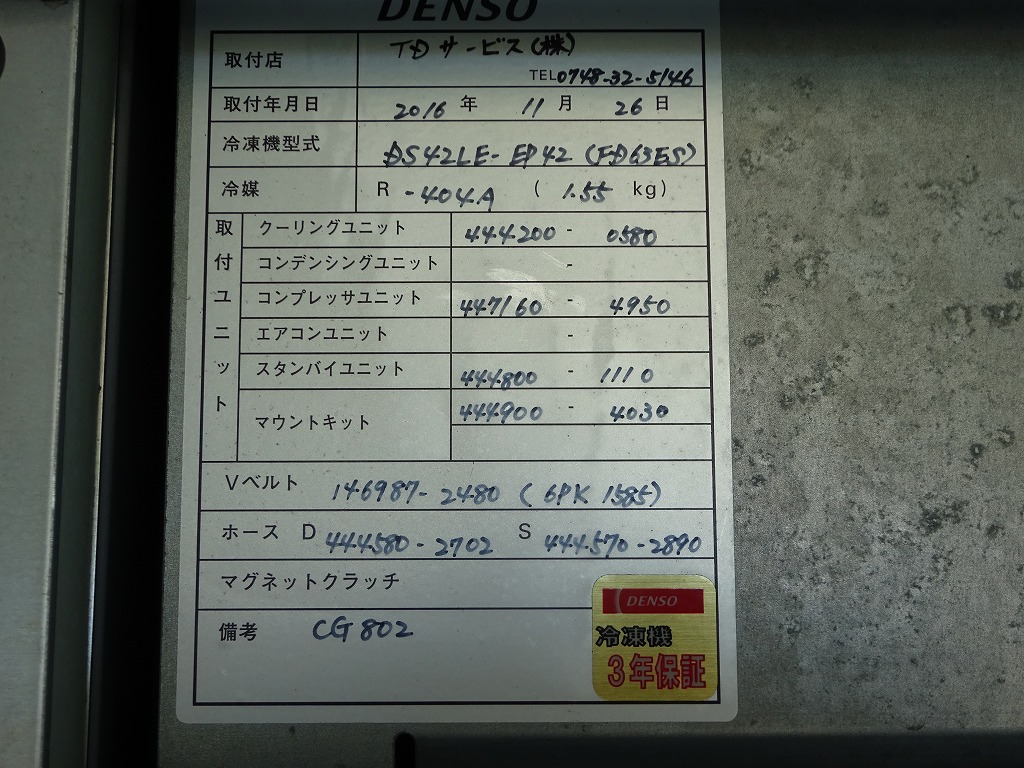 DENSO
取付店 TDサービス(株)
TEL 0748-32-5146
取付年月日 2016 年 11 月 26 日
冷凍機型式 DS42LE-EP42 (FD63ES)
冷媒 R -404A ( 1.55 kg)
取付ユニット
クーリングユニット 444200 - 0580
コンデンシングユニット -
コンプレッサユニット 447160 - 4950
エアコンユニット -
スタンバイユニット 444800 - 1110
マウントキット 444900 - 4030
Vベルト 146987-2480 (6PK 1585)
ホース D 444580-2702 S 444570-2890
マグネットクラッチ
備考 CG802
DENSO
冷凍機
3年保証